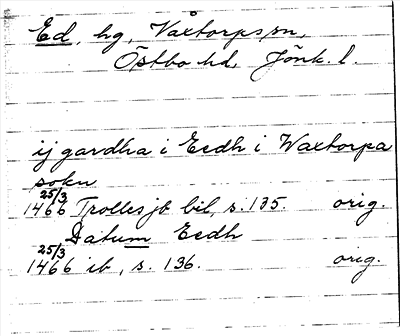 Ed, hg, Våxtorps sn,
Östbo hd, Jönk. l.
ij gardha i Eedh i Waxtorpa
sokn
25/3 1466 Trolles jb bil, s. 135. orig.
Datum Eedh
25/3 1466 ib, s. 136. orig.